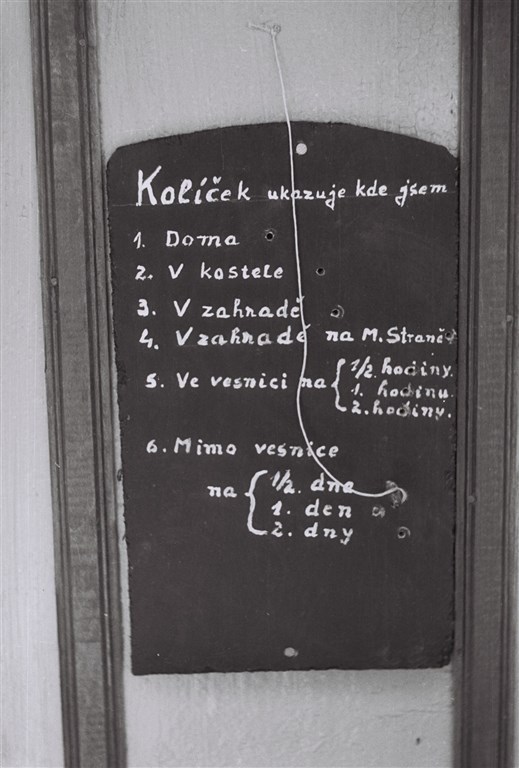 Kolíček ukazuje kde jsem
1. Doma
2. V kostele
3. V zahradě
4. V zahradě na M. Straně
5. Ve vesnici na { 1/2. hodiny.
1. hodinu.
2. hodiny.
6. Mimo vesnice
na { 1/2. dne
1. den
2. dny